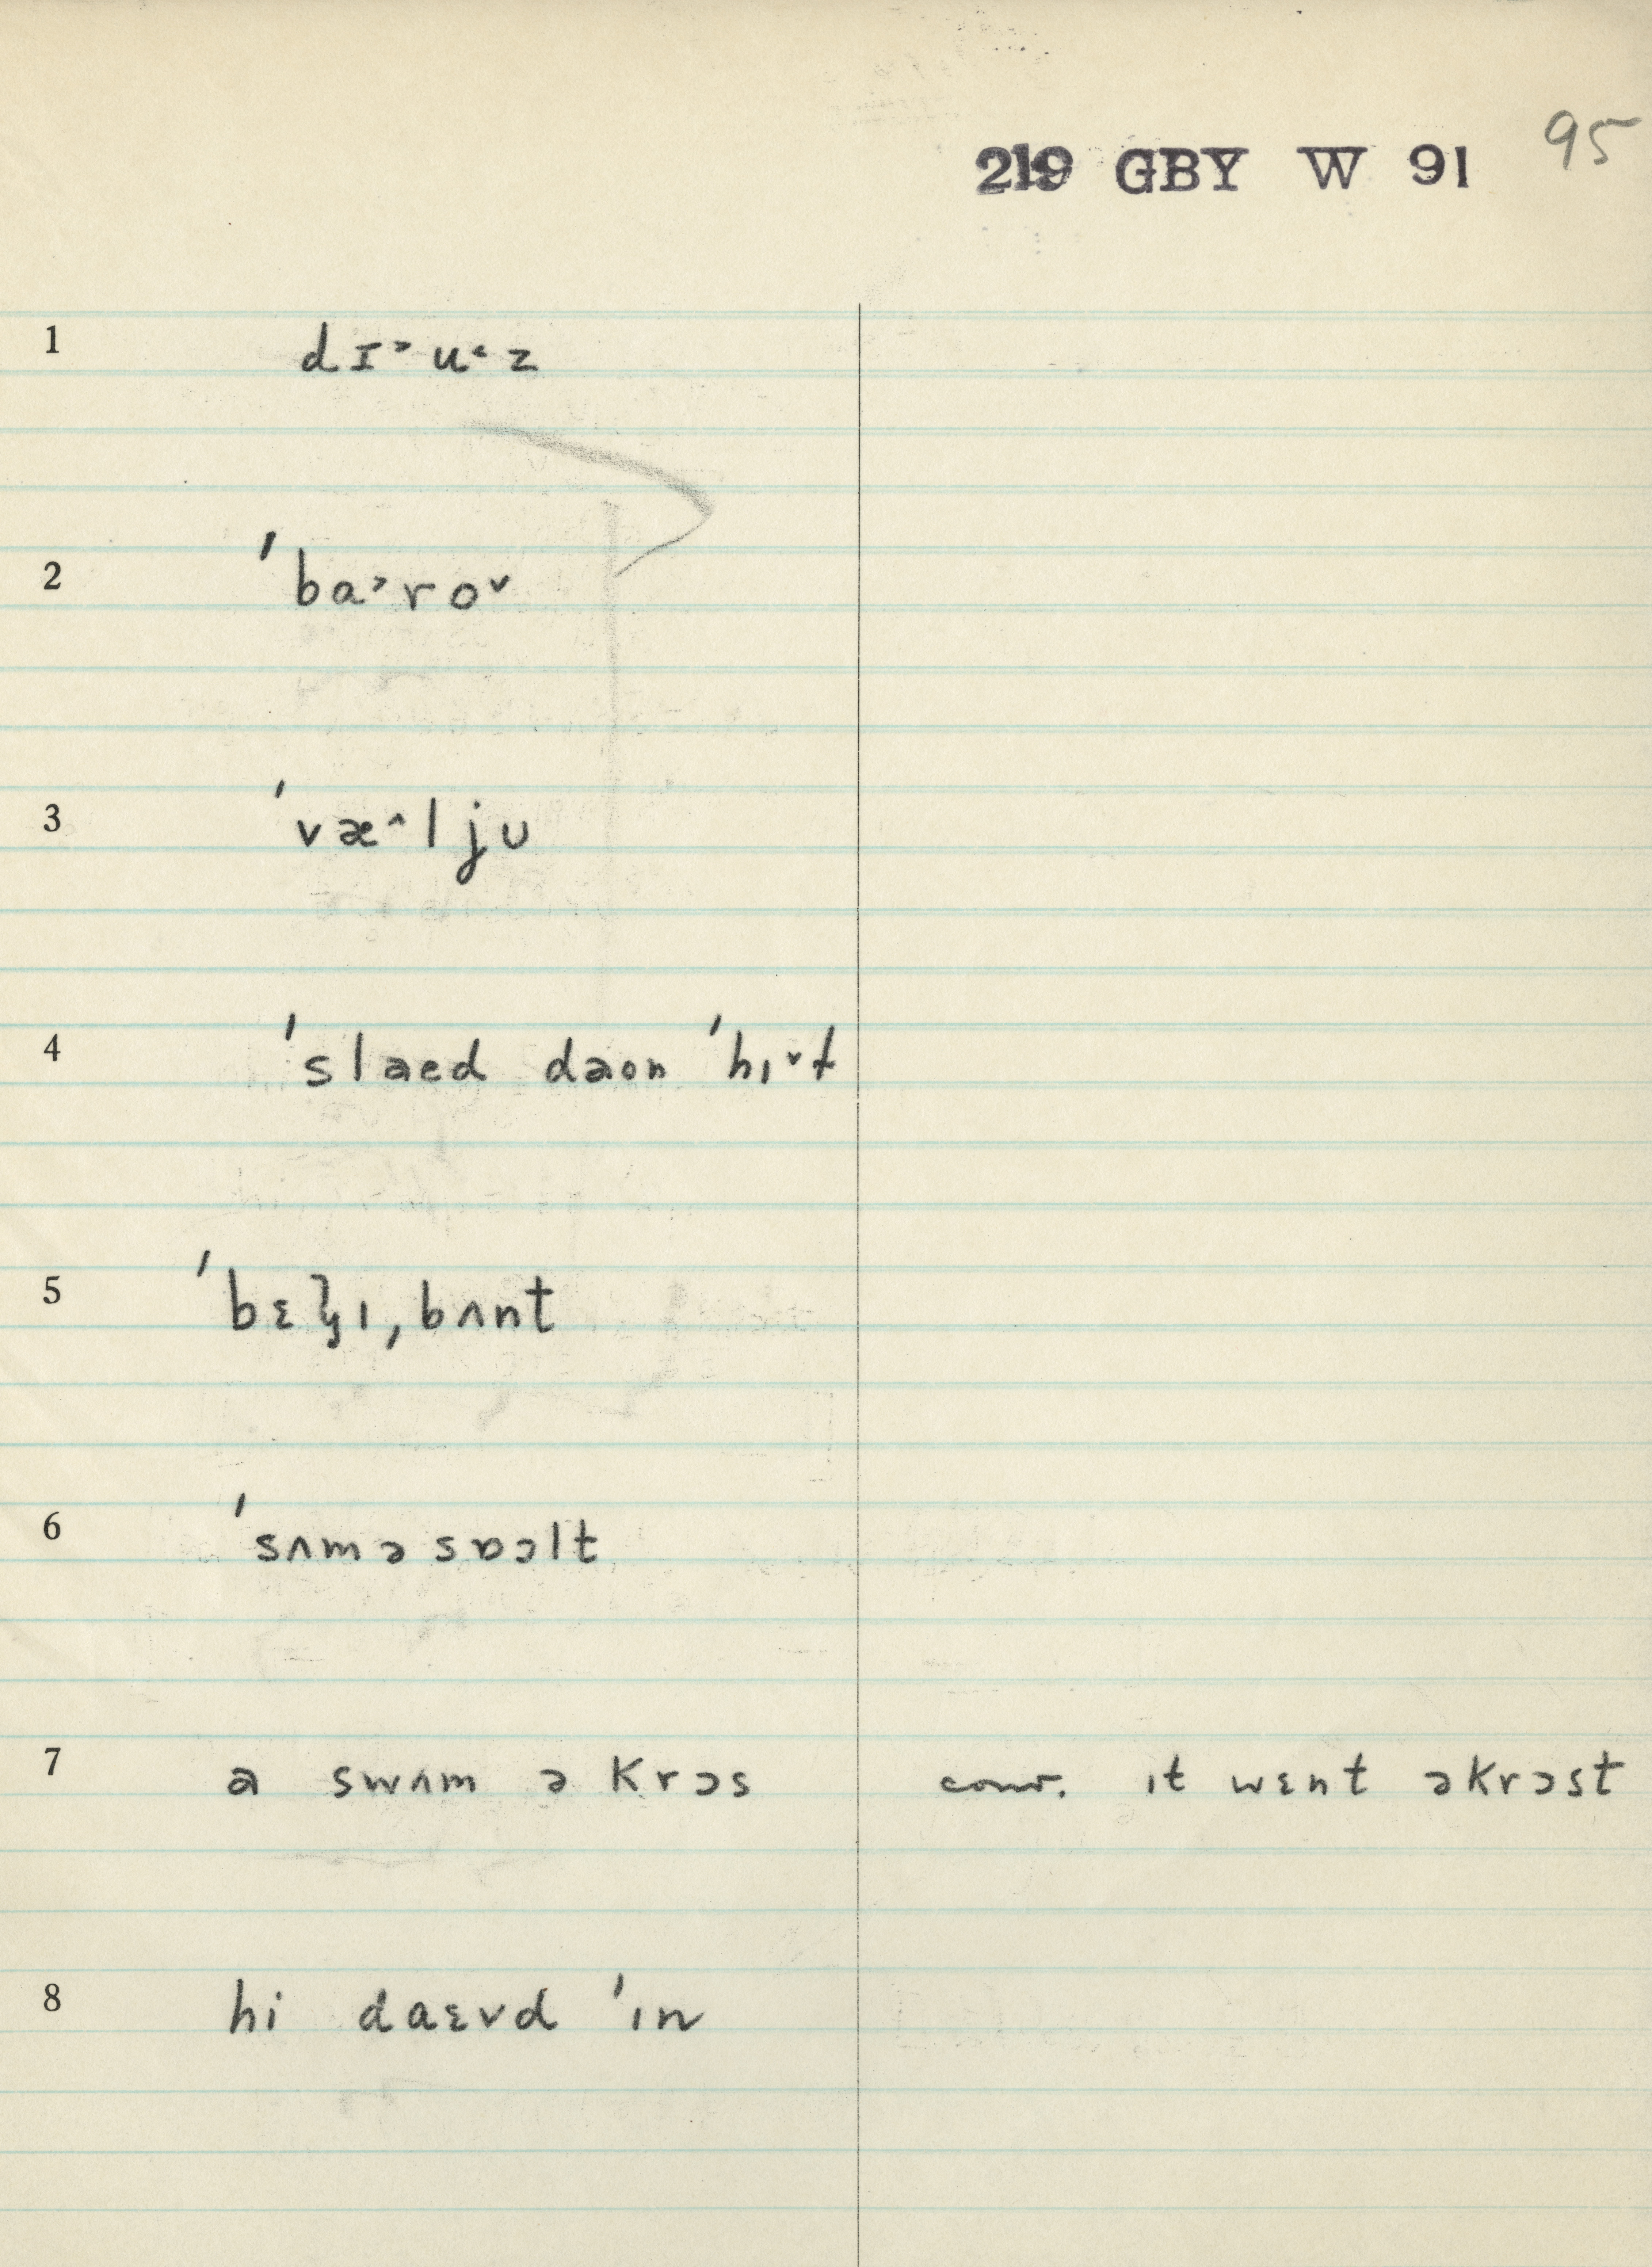 219 GBY W 91 95
1 dɪ˃u˂z
2 ˈba˃ro˅
3 ˈvæ˄ljʊ
4 ˈslaed daon ˈhɪ˅t
5 ˈbɛlɪˌbʌnt
6 ˈsʌməsɒɔlt
7 a swʌm ə krɔs conv. ɪt wɛnt əkrɔst
8 hi daɛvd ˈɪn